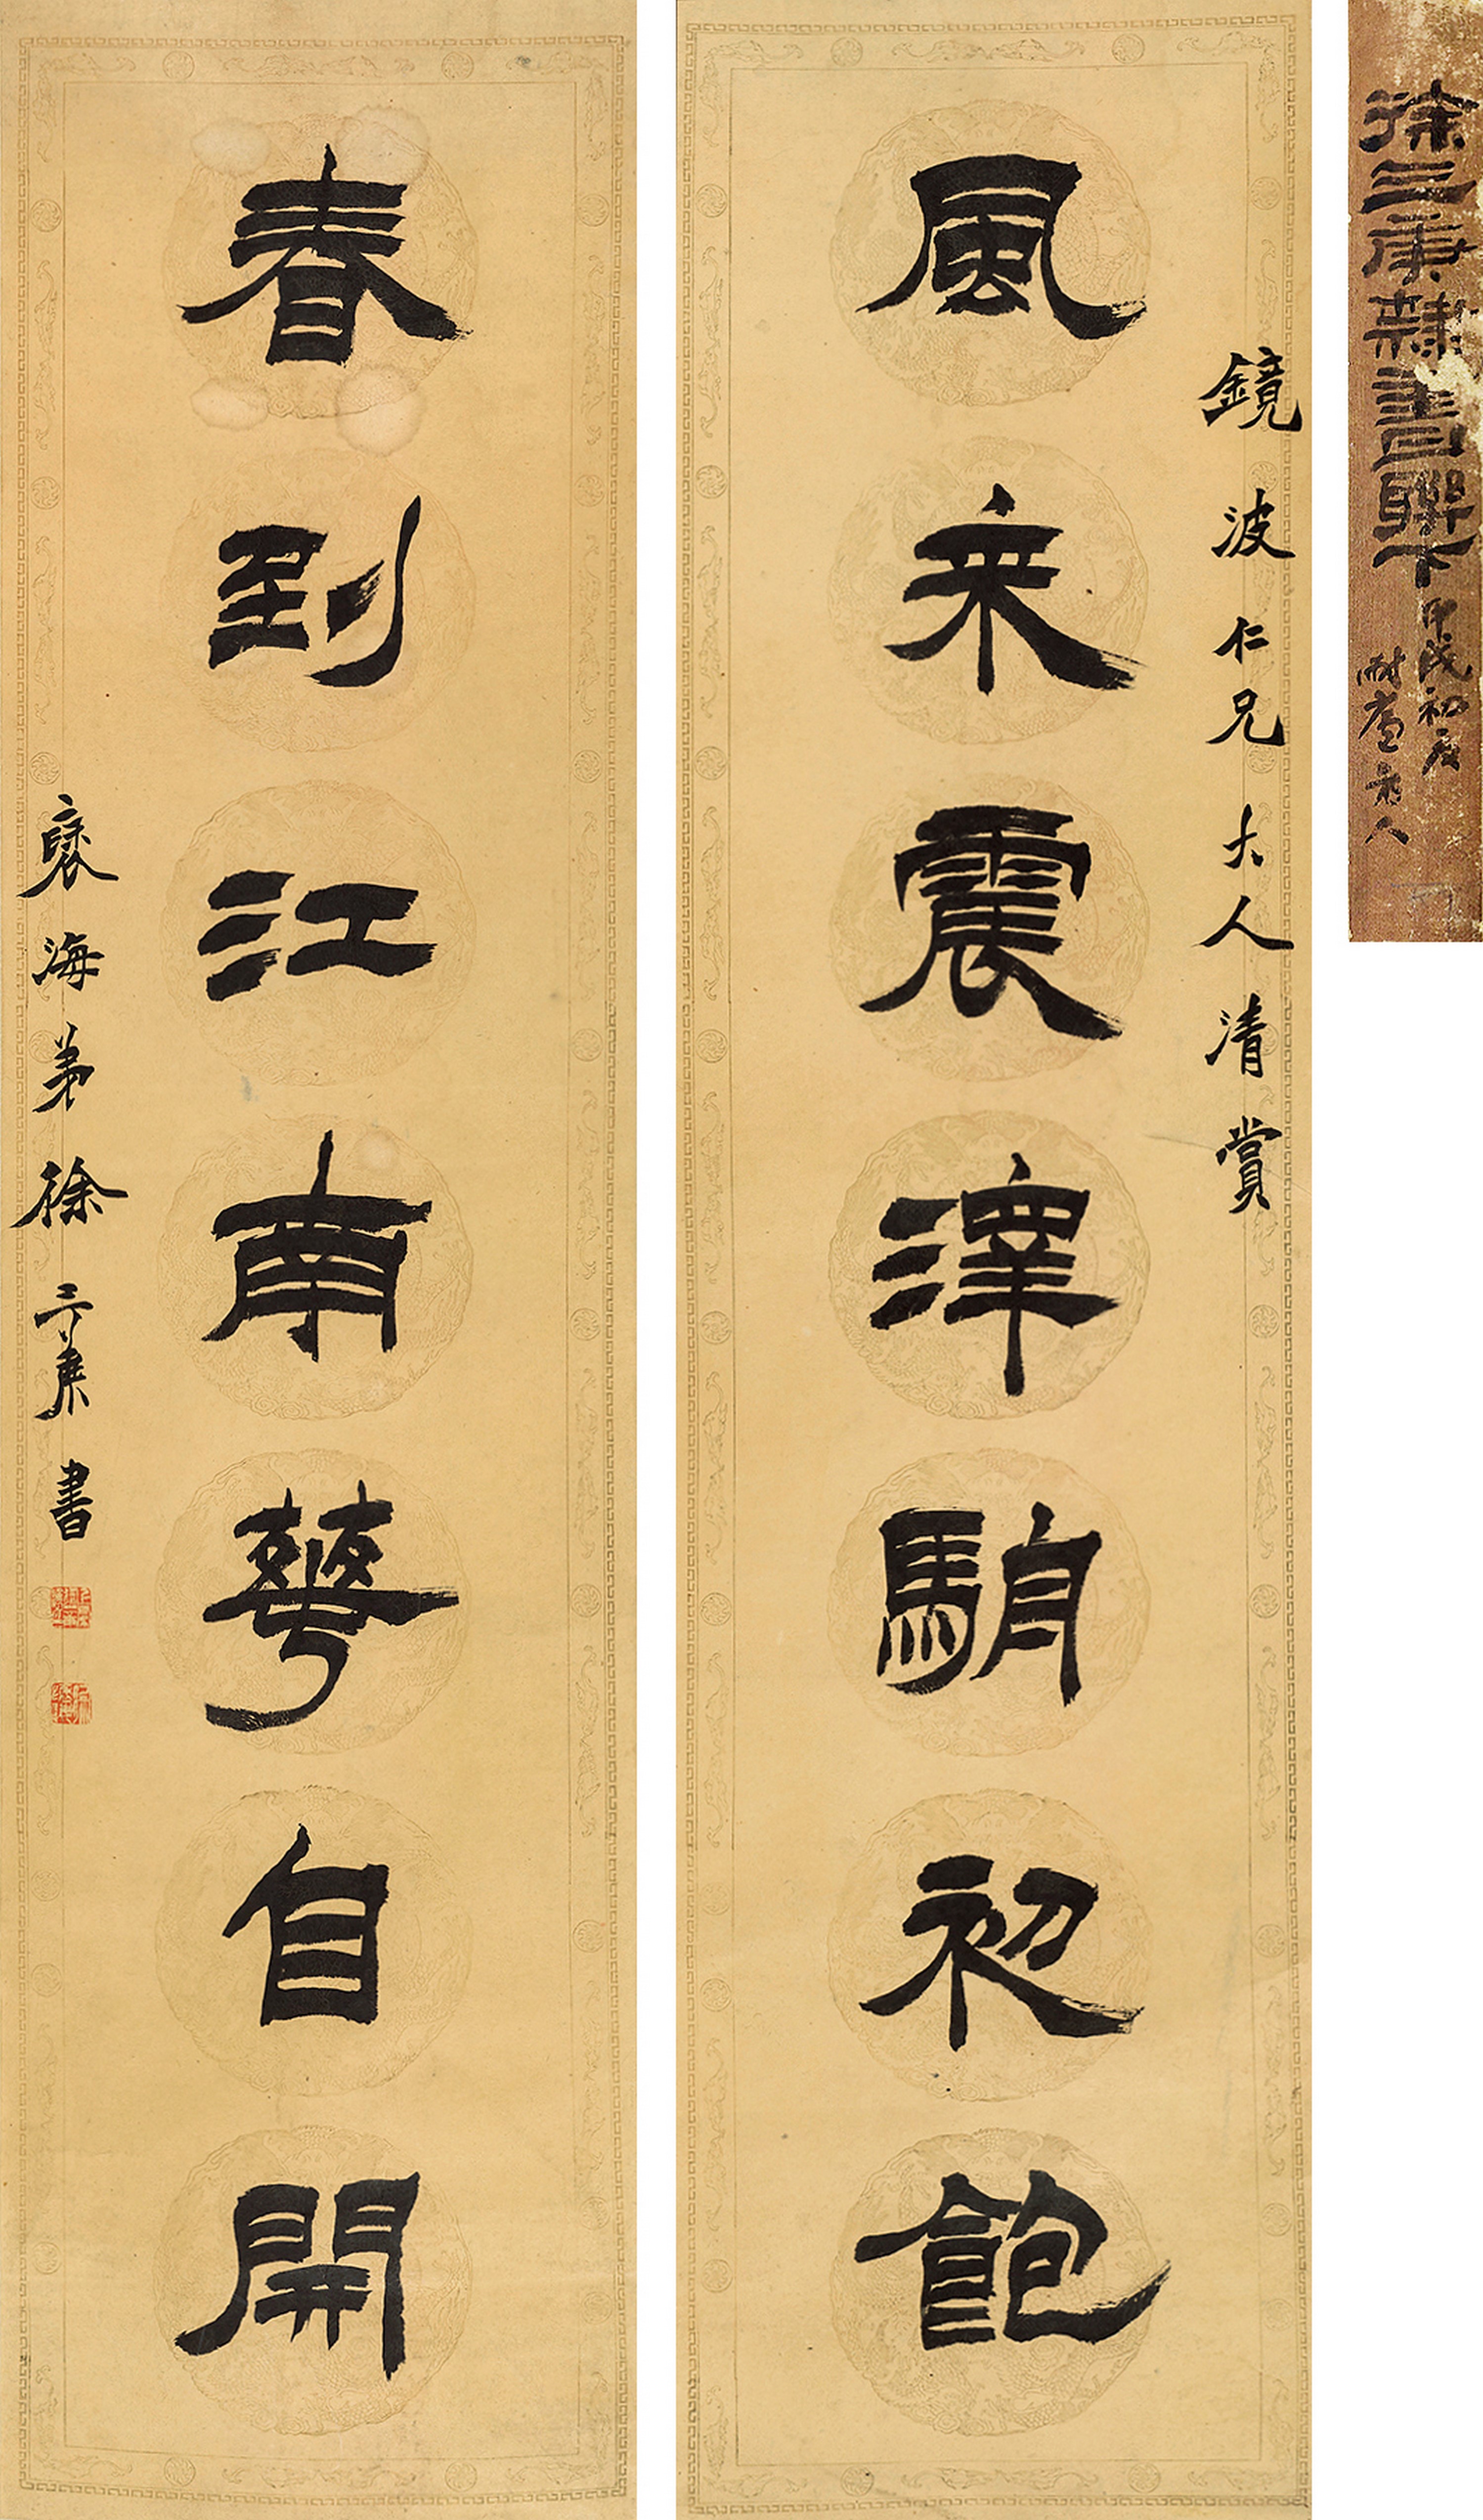 徐三庚隸書聯下
甲戌初夏
鏡波仁兄大人清賞
風來震澤初飽
春到江南華自開
褎海弟徐三庚書